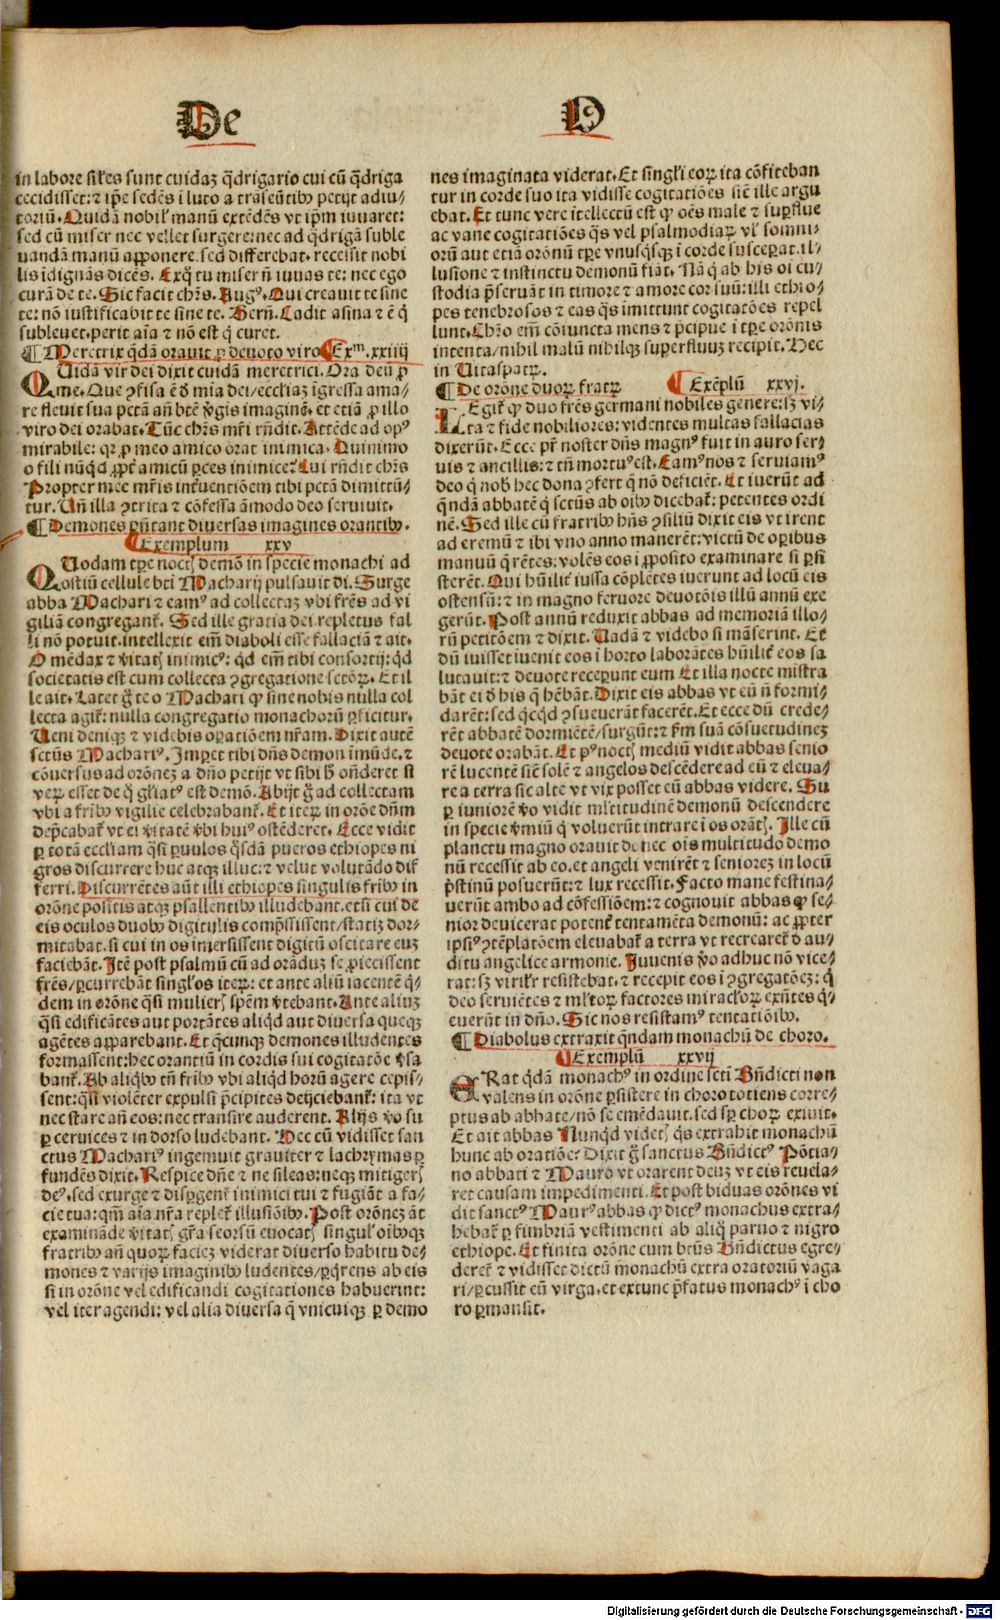 De
D
in labore siłes sunt cuidaȝ q̄drigario cui cū q̄driga
cecidisset: ⁊ ip̄e sedēs i luto a trāseūtibꝰ petijt adiu⸗
toriū. Quidā nobil' manū extēdēs vt ip̄m iuuaret:
sed cū miser nec vellet surgere: nec ad q̄drigā suble
uandā manū aꝓponere. sed differebat. recessit nobi
lis īdignās dicēs. Exq̄ tu miser nō iuuas te: nec ego
curā de te. Sic facit chr̄s. Augꝰ. Qui creauit te sine
te: nō iustificabit te sine te. Bern̄. Cadit asina ⁊ ē q̄
subleuet. perit aīa ⁊ nō est q̄ curet.
¶ Meretrix q̄dā orauit ꝓ deuoto viro ¶ Exᵐ. xxiiij
QUidā vir dei dixit cuidā meretrici. Ora deū ꝓ
me. Que ꝯfisa ē d̄ mīa dei / eccliaȝ igressa ama⸗
re fleuit sua pctā an̄ btē v̄gis imaginē. et etiā ꝓ illo
viro dei orabat. Tūc chr̄s mr̄i rn̄dit. Attēde ad opꝰ
mirabile: qꝛ ꝓ meo amico orat inimica. Quinimo
o fili nūq̄d ꝓpt̄ amicū ꝑces inimice? Cui rn̄dit chr̄s
Propter nec mr̄is int̄uentiōem tibi pctā dimittū⸗
tur. Un̄ illa ꝯtrita ⁊ cōfessa āmodo deo seruiuit.
¶ Demones p̄n̄tant diuersas imagines orantibꝰ.
¶ Exemplum xxv
QUodam tꝑe noctꝭ demō in specie monachi ad
ostiū cellule bti Macharij pulsauit di. Surge
abba Machari ⁊ eamꝰ ad collectaȝ vbi fr̄es ad vi
giliā congregant̄. Sed ille gratia dei repletus fal
li nō potuit. intellexit em̄ diaboli esse fallaciā ⁊ ait.
O mēdax ⁊ v̄itatꝭ inimicꝰ: qd em̄ tibi consortij: qd
societatis est cum collecta ꝯgregatione sctōꝝ. Et il
le ait. Latet ḡ te o Machari ꝙ sine nobis nulla col
lecta agit̄: nulla congregatio monachorū ꝑficitur.
Ueni deniqꝫ ⁊ videbis oꝑatiōem nr̄am. Dixit autē
sctūs Machariꝰ. Imꝑet tibi dn̄s demon īmūde. ⁊
cōuersus ad orōneȝ a dn̄o petijt vt sibi h̄ on̄deret si
veꝝ esset de q̄ gl̄iatꝰ est demō. Abijt ḡ ad collectam
vbi a frībꝰ vigilie celebrabant̄. Et iteꝝ in orōe dn̄m
dep̄cabat̄ vt ei v̄itatē v̄bi huiꝰ ostēderet. Ecce vidit
ꝑ totā eccliam q̄si ꝑuulos q̄sdā pueros ethiopes ni
gros discurrere huc atqꝫ illuc: ⁊ velut volutādo dif
ferri. Discurrētes aūt illi ethiopes singulis frībꝰ in
orōne positis atqꝫ psallentibꝰ illudebant. et si cui de
eis oculos duobꝰ digitulis comp̄ssissent / statiȝ dor⸗
mitabat. si cui in os imersissent digitū oscitare euȝ
faciebāt. Itē post psalmū cū ad orāduȝ se ꝓiecissent
fr̄es / ꝑcurrebāt singlos iteꝝ: et ante aliū iacentē q̄⸗
dem in orōne q̄si mulierꝭ spēm v̄tebant. Ante aliuȝ
q̄si edificātes aut portātes aliqd aut diuersa queqꝫ
agētes apparebant. Et q̄cunqꝫ demones illudentes
formassent: hec orantiū in cordis sui cogitatōe v̄sa
bant̄. Ab aliq̄bꝰ tn̄ frībꝰ vbi aliqd horū agere cepis⸗
sent: q̄si violēter expulsi p̄cipites deijciebant̄: ita vt
nec stare an̄ eos: nec transire auderent. Alijs v̄o su
ꝑ ceruices ⁊ in dorso ludebant. Hec cū vidisset san
ctus Machariꝰ ingemuit grauiter ⁊ lachrymas ꝓ
fundēs dixit. Respice dn̄e ⁊ ne sileas: neqꝫ mitigerꝭ
deꝰ. sed exurge ⁊ disꝑgent̄ inimici tui ⁊ fugiāt a fa⸗
cie tua: qm̄ aīa nr̄a replet̄ illusiōibꝰ. Post orōneȝ āt
examināde v̄itatꝭ gr̄a seorsū euocatꝭ singul' oībꝰqꝫ
fratribꝰ an̄ quoꝝ facieȝ viderat diuerso habitu de⸗
mones ⁊ varijs imaginibꝰ ludentes / ꝑq̄rens ab eis
si in orōne vel edificandi cogitationes habuerint:
vel iter agendi: vel alia diuersa q̄ vnicuiqꝫ ꝑ demo
nes imaginata viderat. Et singl'i eoꝝ ita cōfiteban
tur in corde suo ita vidisse cogitatiōes sic̄ ille argu
ebat. Et tunc vere itellectū est ꝙ oēs male ⁊ suꝑflue
ac vane cogitatiōes q̄s vel psalmodiaꝝ vl' somni⸗
orū aut etiā orōnū tꝑe vnusq̄sqꝫ i corde susceꝑat. il⸗
lusione ⁊ instinctu demonū fiāt. Nā q̄ ab his oi cu⸗
stodia p̄seruāt in timore ⁊ amore cor suū: illi ethio⸗
pes tenebrosos ⁊ eas q̄s imittunt cogitatōes repel
lunt. Chr̄o em̄ cōiuncta mens ⁊ p̄cipue i tꝑe orōnis
intenta / nihil malū nihilqꝫ suꝑfluuȝ recipit. Hec
in Uitaspatꝝ.
¶ De orōne duoꝝ fratꝝ ¶ Exēplū xxvj.
LEgit̄ ꝙ duo fr̄es germani nobiles genere: sȝ vi⸗
ta ⁊ fide nobiliores: videntes multas fallacias
dixerūt. Ecce pr̄ noster dn̄s magnꝰ fuit in auro ser⸗
uis ⁊ ancillis: ⁊ tn̄ mortuꝰ est. Eamꝰ nos ⁊ seruiamꝰ
deo q̄ nob̄ hec dona ꝯfert q̄ nō deficiēt. Et iuerūt ad
q̄ndā abbatē q̄ sctūs ab oībꝰ dicebat̄: petentes ordi
nē. Sed ille cū fratribꝰ hn̄s ꝯsiliū dixit eis vt irent
ad eremū ⁊ ibi vno anno manerēt: victū de oꝑibus
manuū q̄rētes: volēs eos i ꝓposito examinare si ꝑsi
sterēt. Qui hūilit̄ iussa cōplētes iuerunt ad locū eis
ostensū: ⁊ in magno feruore deuotōis illū annū exe
gerūt. Post annū reduxit abbas ad memoriā illo⸗
rū petitōem ⁊ dixit. Uadā ⁊ videbo si māserint. Et
dū iuisset iuenit eos i horto laborātes hūilit̄ eos sa
lutauit: ⁊ deuote receꝑunt eum Et illa nocte mīstra
bāt ei d̄ his q̄ hēbāt. Dixit eis abbas vt eū n̄ formi⸗
darēt: sed q̄cqd ꝯsueuerāt facerēt. Et ecce dū crede⸗
rēt abbatē dormiētē / surgūt: ⁊ ẜm suā cōsuetudineȝ
deuote orabāt. Et pꝰ noctꝭ mediū vidit abbas senio
rē lucentē sic̄ solē ⁊ angelos descēdere ad eū ⁊ eleua⸗
re a terra sic alte vt vix posset eū abbas videre. Su
ꝑ iuniorē vo vidit ml̄titudinē demonū descendere
in specie v̄miū q̄ voluerūt intrare i os orātꝭ. Ille cū
planctu magno orauit donec oīs multitudo demo
nū recessit ab eo. et angeli venirēt ⁊ senioreȝ in locū
p̄stinū posuerūt: ⁊ lux recessit. Facto mane festina⸗
uerūt ambo ad cōfessiōem: ⁊ cognouit abbas ꝙ se⸗
nior deuicerat potent̄ tentamēta demonū: ac ꝓpter
ipsiꝰ ꝯtēplatōem eleuabat̄ a terra vt recrearet̄ d̄ au⸗
ditu angelice armonie. Iuuenis v̄o adhuc nō vice⸗
rat: sȝ virilit̄ resistebat. ⁊ recepit eos i ꝯgregatōeȝ: q̄
deo seruiētes ⁊ ml̄toꝝ factores miraclōꝝ exn̄tes q̄⸗
euerūt in dn̄o. Sic nos resistamꝰ tentatiōibꝰ.
¶ Diabolus extraxit q̄ndam monachū de choro.
¶ Exemplū xxvij
ERat q̄dā monachꝰ in ordine scti Bn̄dicti non
valens in orōne ꝑsistere in choro totiens corre⸗
ptus ab abbate / nō se emēdauit. sed sꝑ choꝝ exiuit.
Et ait abbas Nunqd videtꝭ q̄s extrahit monachū
hunc ab oratiōe? Dixit ḡ sanctus Bn̄dictꝰ Pōtia⸗
no abbati ⁊ Mauro vt orarent deuȝ vt eis reuela⸗
ret causam impedimenti. Et post biduas orōnes vi
dit sanctꝰ Maurꝰ abbas ꝙ dictꝰ monachus extra⸗
hebat̄ ꝑ fimbriā vestimenti ab aliq̄ paruo ⁊ nigro
ethiope. Et finita orōne cum btūs Bn̄dictus egre⸗
deret̄ ⁊ vidisset dictū monachū extra oratoriū vaga
ri / ꝑcussit eū virga. et extunc p̄fatus monachꝰ i cho
ro ꝑmansit.
Digitalisierung gefördert durch die Deutsche Forschungsgemeinschaft - DFG